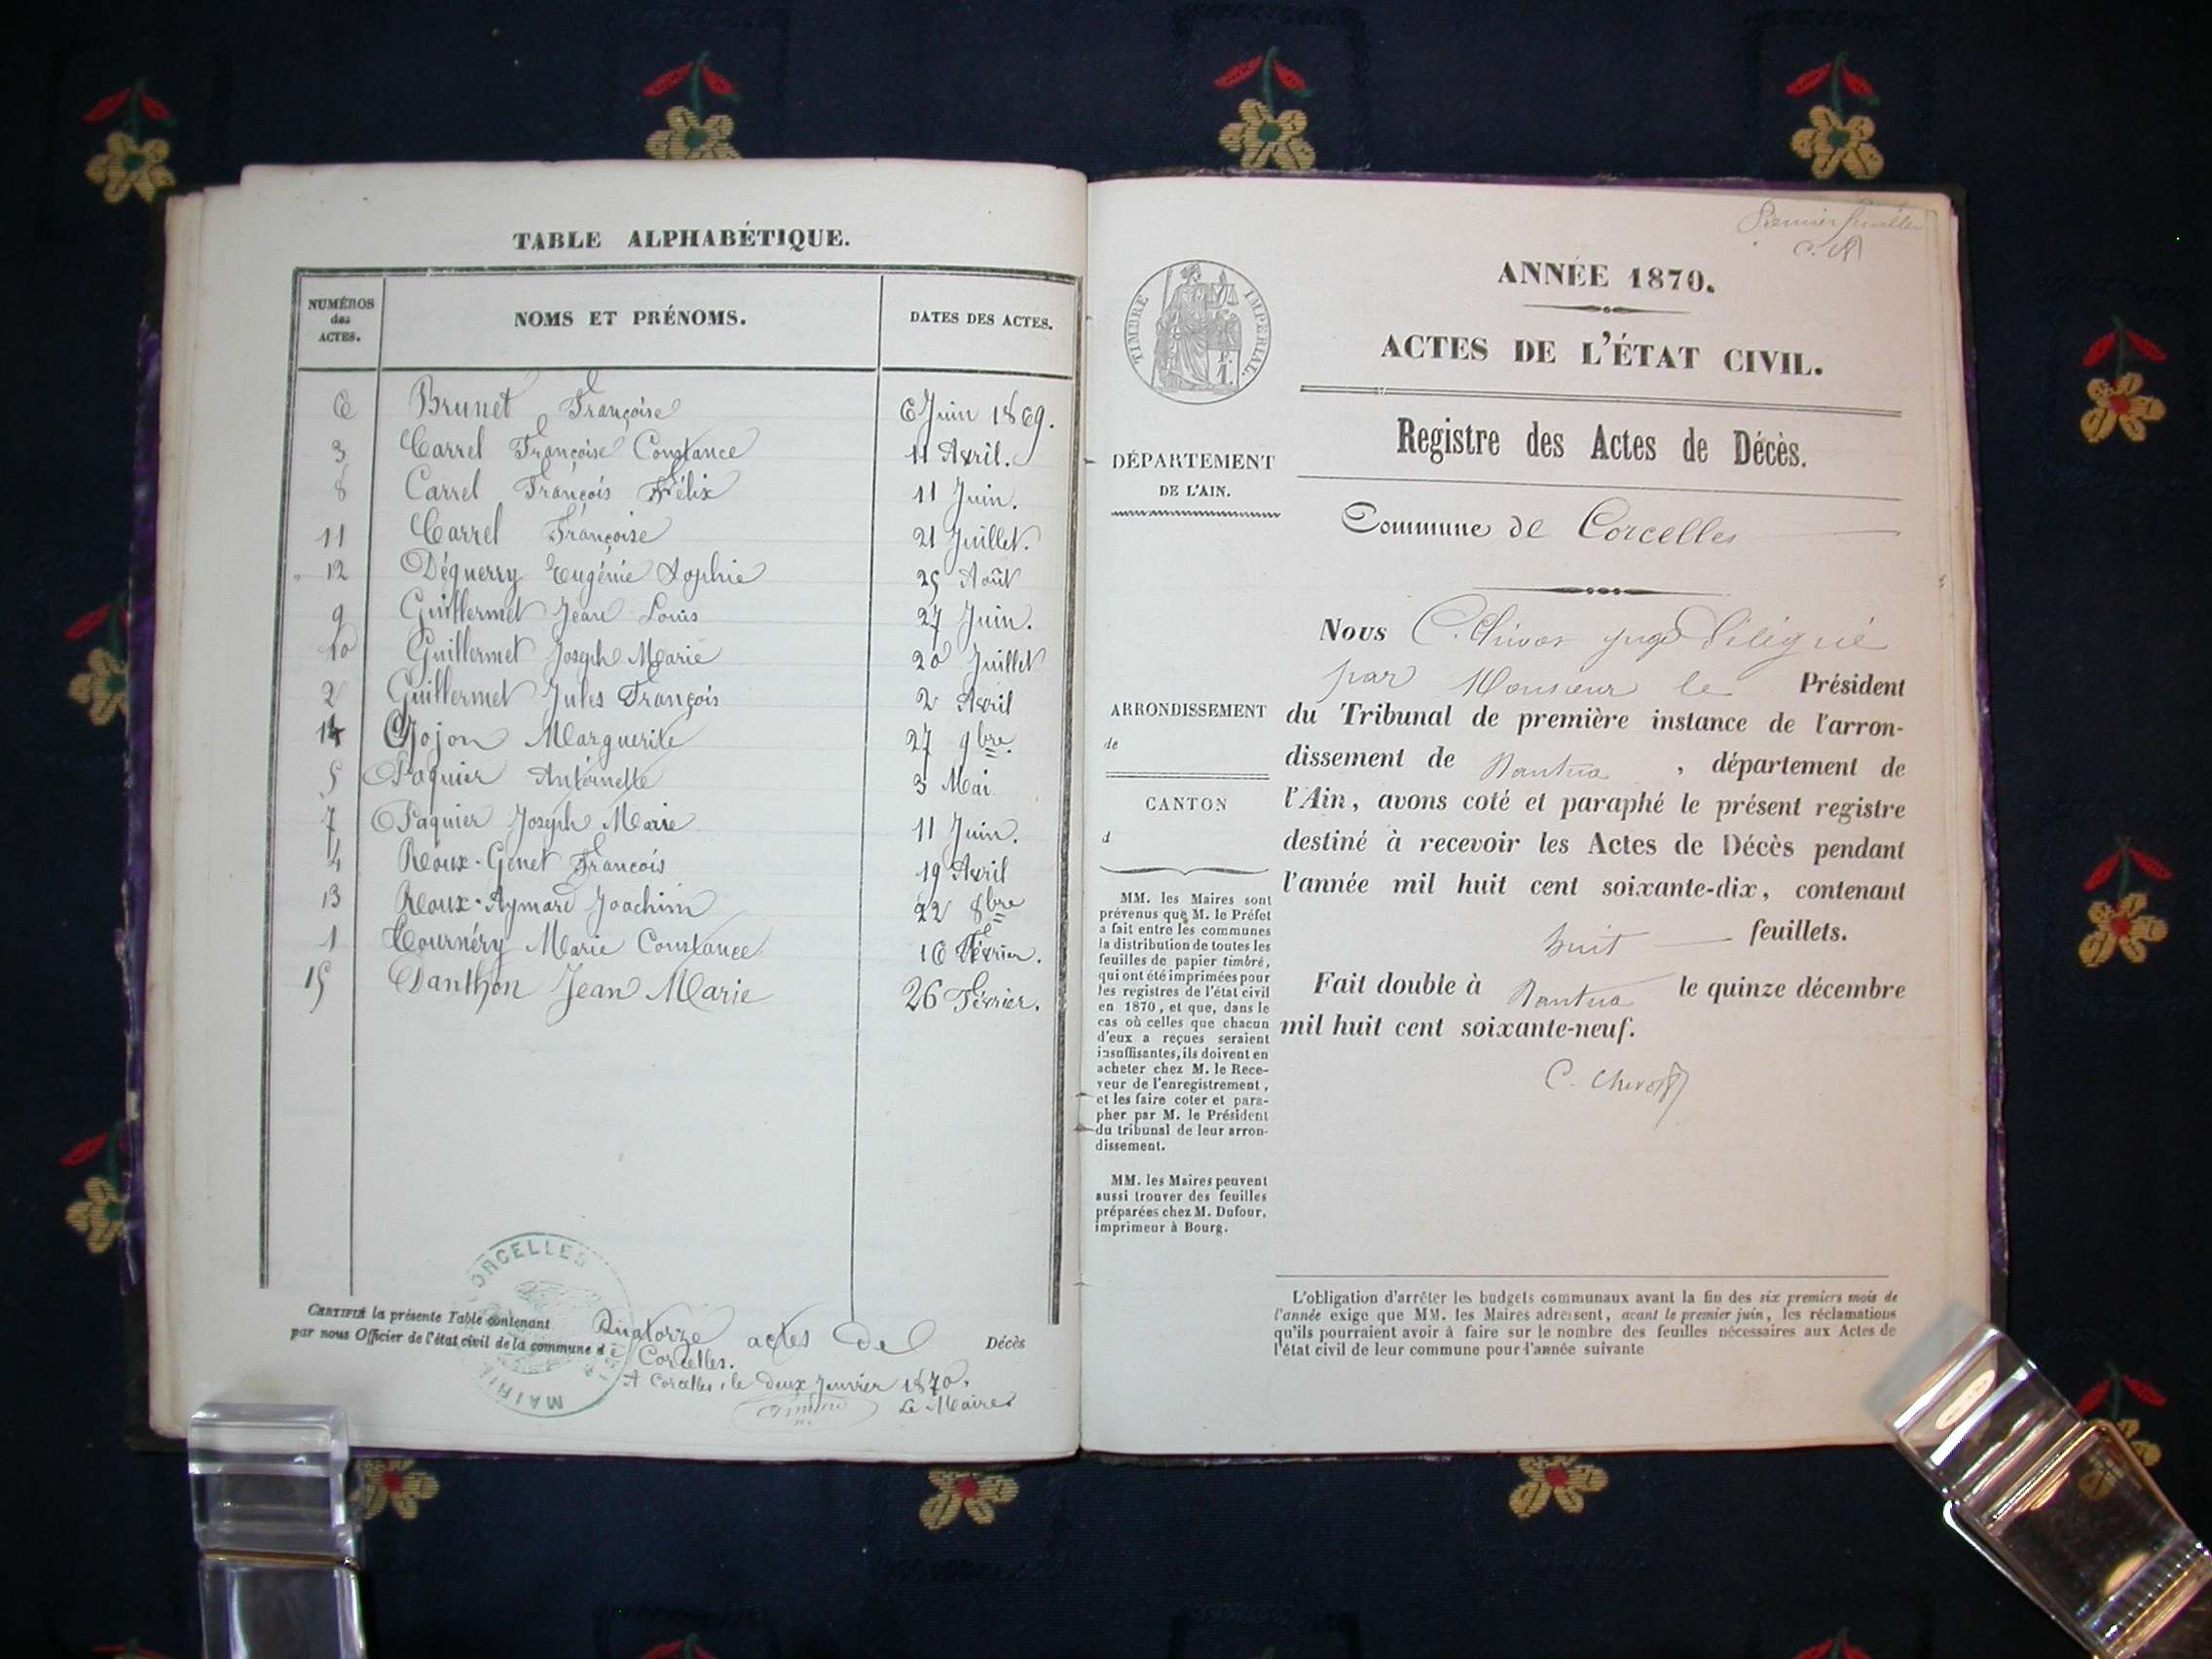 TABLE ALPHABÉTIQUE.
NUMÉROS
des
ACTES.
NOMS ET PRÉNOMS.
DATES DES ACTES.
6 Brunet Françoise 6 Juin 1869.
3 Carrel Françoise Constance 11 Avril.
8 Carrel François Félix 11 Juin.
11 Carrel Françoise 21 Juillet.
12 Déguerry Eugénie Sophie 25 Août
9 Guillermet Jean Louis 27 Juin.
10 Guillermet Joseph Marie 20 Juillet
2 Guillermet Jules François 2 Avril
14 Gojon Marguerite 27 9bre
5 Paquier Antoinette 3 Mai
7 Paquier Joseph Marie 11 Juin.
4 Roux-Genet François 19 Avril
13 Roux-Aymard Joachim 22 8bre
1 Tournéry Marie Constance 16 Février.
15 Danthon Jean Marie 26 Février.
CERTIFIÉ la présente Table contenant Quatorze actes de Décès
par nous Officier de l'état civil de la commune de Corcelles.
A Corcelles, le deux Janvier 1870.
Le Maire
CORCELLES
MAIRIE
Premier feuillet
TIMBRE IMPÉRIAL.
ANNÉE 1870.
ACTES DE L'ÉTAT CIVIL.
Registre des Actes de Décès.
DÉPARTEMENT
DE L'AIN.
Commune de Corcelles
ARRONDISSEMENT
de
CANTON
d
MM. les Maires sont
prévenus que M. le Préfet
a fait entre les communes
la distribution de toutes les
feuilles de papier timbré,
qui ont été imprimées pour
les registres de l'état civil
en 1870, et que, dans le
cas où celles que chacun
d'eux a reçues seraient
insuffisantes, ils doivent en
acheter chez M. le Rece-
veur de l'enregistrement,
et les faire coter et para-
pher par M. le Président
du tribunal de leur arron-
dissement.
MM. les Maires peuvent
aussi trouver des feuilles
préparées chez M. Dufour,
imprimeur à Bourg.
Nous C. juge délégué
par Monsieur le Président
du Tribunal de première instance de l'arron-
dissement de Nantua, département de
l'Ain, avons coté et paraphé le présent registre
destiné à recevoir les Actes de Décès pendant
l'année mil huit cent soixante-dix, contenant
huit feuillets.
Fait double à Nantua le quinze décembre
mil huit cent soixante-neuf.
L'obligation d'arrêter les budgets communaux avant la fin des six premiers mois de
l'année exige que MM. les Maires adressent, avant le premier juin, les réclamations
qu'ils pourraient avoir à faire sur le nombre des feuilles nécessaires aux Actes de
l'état civil de leur commune pour l'année suivante